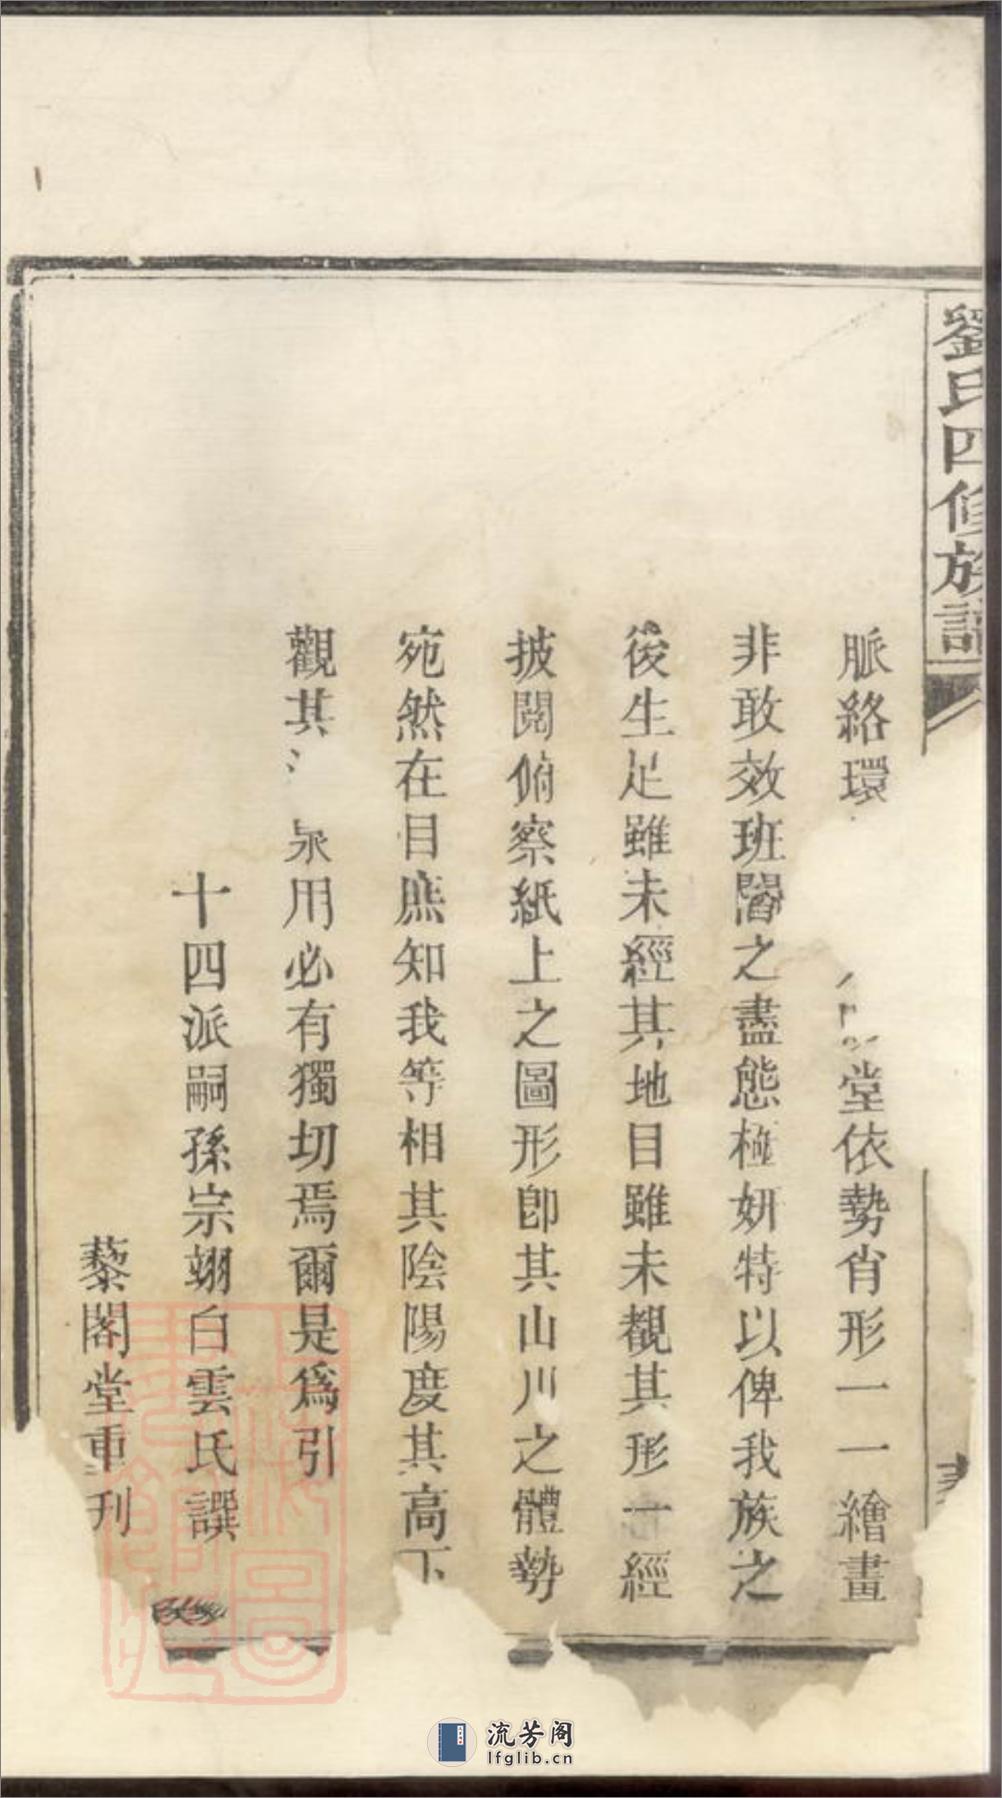 劉氏四修族譜
脈絡環堂依勢肖形一一繪畫
非敢效班閻之盡態極妍特以俾我族之
後生足雖未經其地目雖未覩其形一經
披閱俯察紙上之圖形卽其山川之體勢
宛然在目庶知我等相其陰陽度其高下
觀其泉用必有獨切焉爾是爲引
十四派嗣孫宗翊白雲氏譔
藜閣堂重刋
流芳阁
lfglib.cn